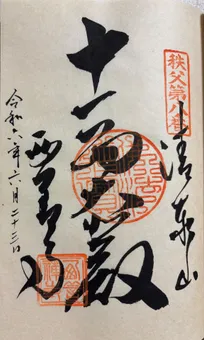 秩父第八番
清泰山
十一面大殿
西善寺
令和六年六月二十三日